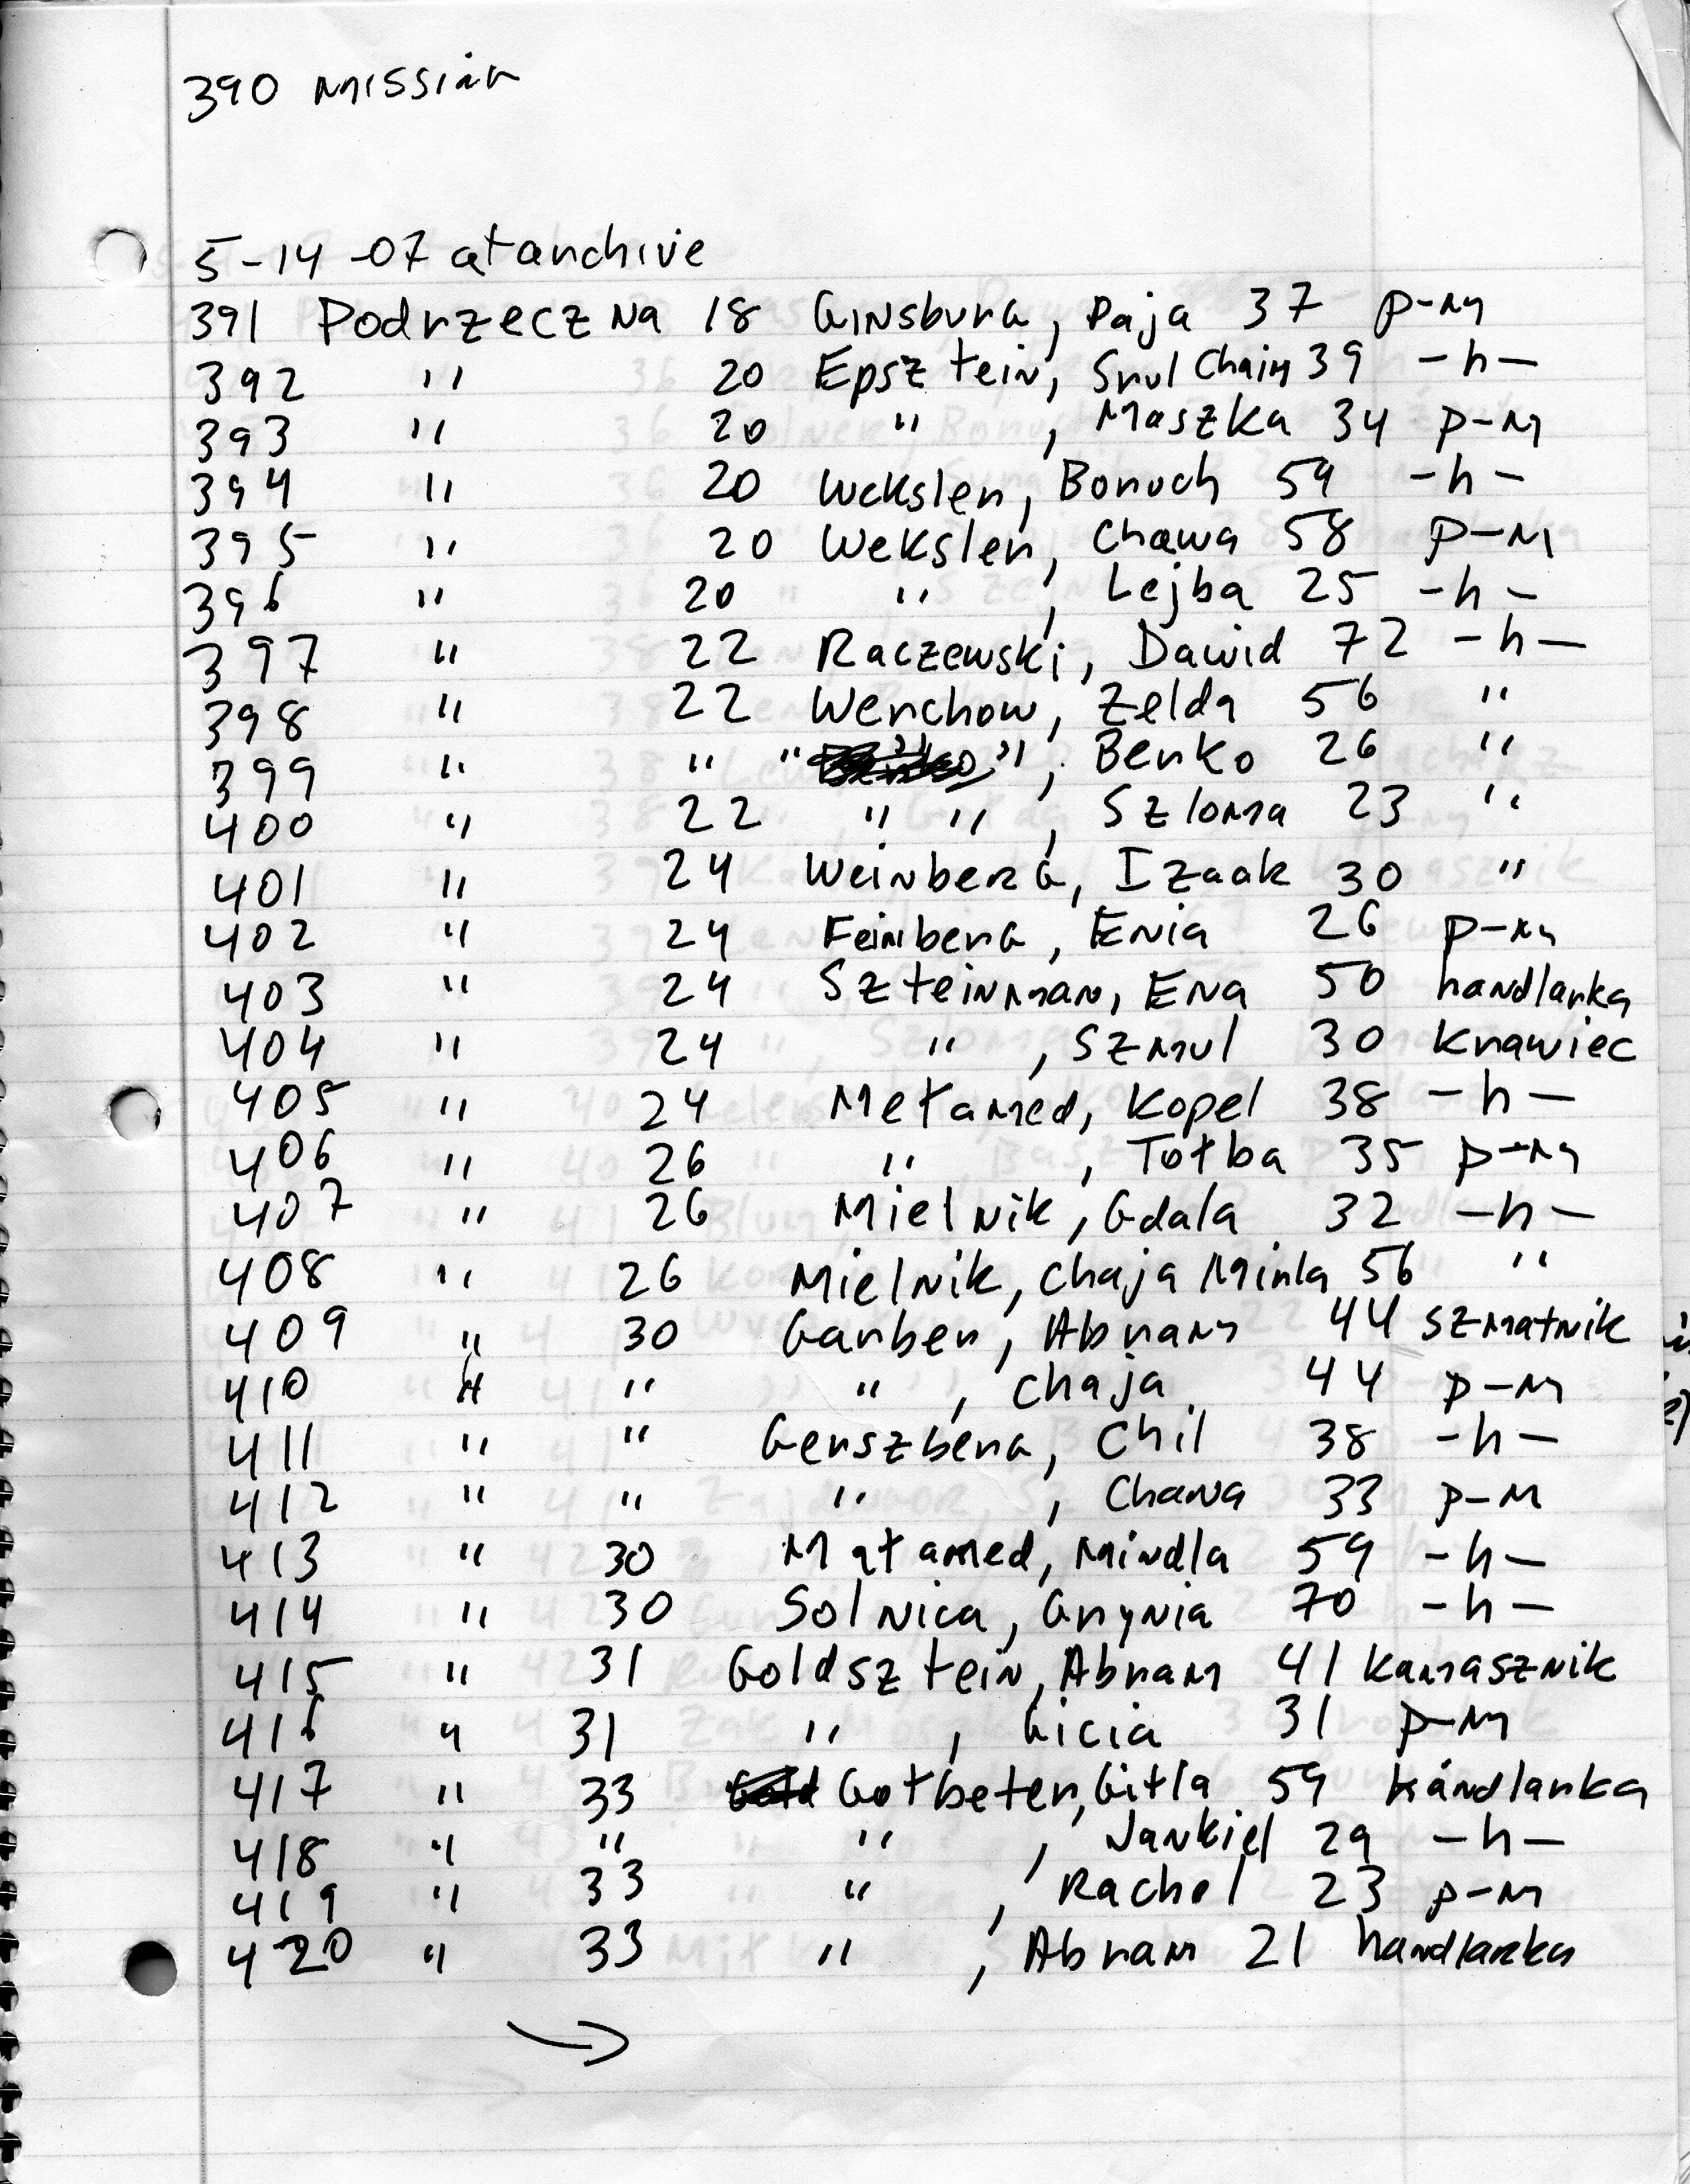 390 missing
5-14-07 at archive
391 Podrzeczna 18 Ginsburg, Paja 37 p-m
392 " 20 Epsztein, Srul Chaim 39 -h-
393 " 20 " , Maszka 34 p-m
394 " 20 Weksler, Boruch 59 -h-
395 " 20 Weksler, Chawa 58 p-m
396 " 20 " , Lejba 25 -h-
397 " 22 Raczewski, Dawid 72 -h-
398 " 22 Werchow, Zelda 56 "
399 " " " " , Berko 26 "
400 " 22 " " , Szloma 23 "
401 " 24 Weinberg, Izaak 30 "
402 " 24 Feinberg, Enia 26 p-m
403 " 24 Szteinman, Ena 50 handlarka
404 " 24 " , Szmul 30 Krawiec
405 " 24 Metamed, Kopel 38 -h-
406 " 26 " , Totba 35 p-m
407 " 26 Mielnik, Gdala 32 -h-
408 " 26 Mielnik, Chaja Mirla 56 "
409 " 30 Garber, Abram 44 szmatnik
410 " " " , Chaja 44 p-m
411 " " Gerszberg, Chil 38 -h-
412 " " " , Chana 33 p-m
413 " 30 Matamed, Mindla 59 -h-
414 " 30 Solnica, Grynia 70 -h-
415 " 31 Goldsztein, Abram 41 kamasznik
416 " 31 " , Gicia 31 p-m
417 " 33 Gotbeter, Gitla 59 handlarka
418 " " " , Jankiel 29 -h-
419 " 33 " , Rachel 23 p-m
420 " 33 " , Abram 21 handlarka